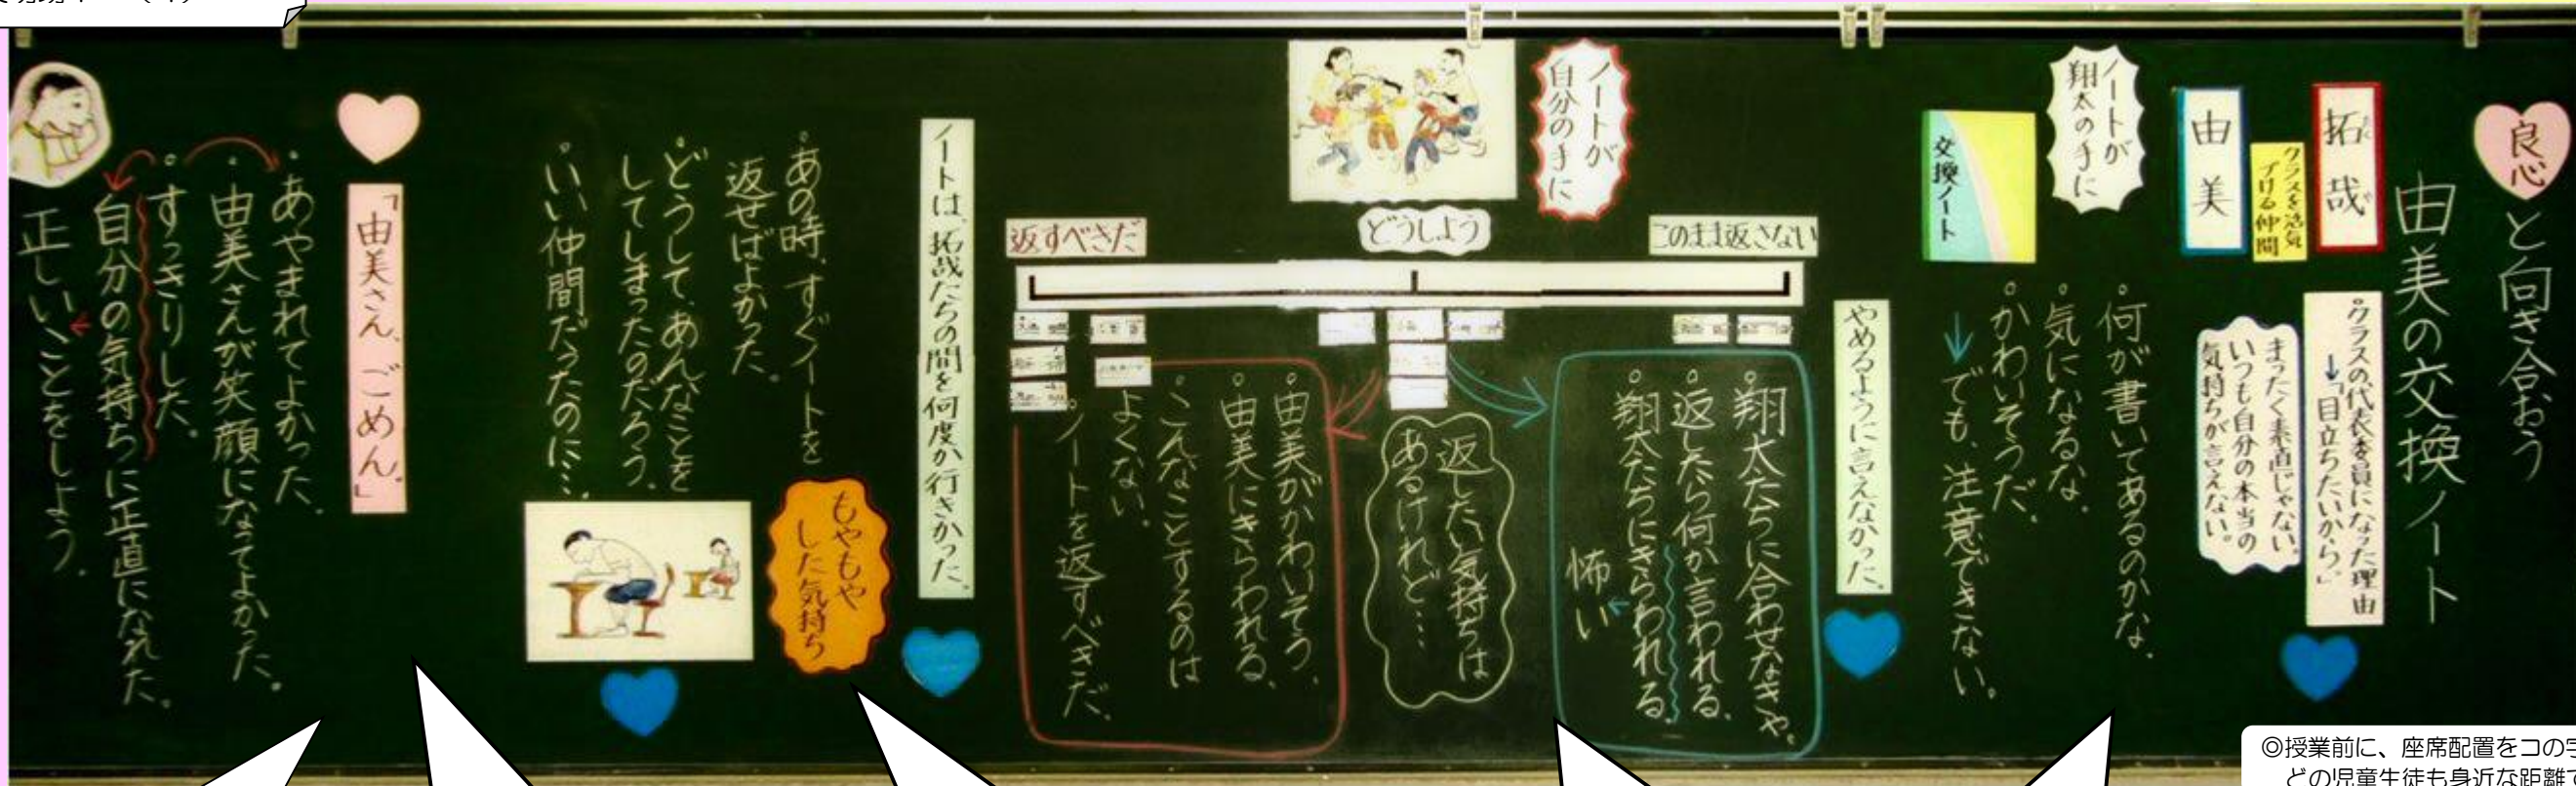 良心と向き合おう
由美の交換ノート
拓哉
たくや
クラスを活気
づける仲間
由美
。クラスの代表委員になった理由
→「目立ちたいから。」
まったく素直じゃない。
いつも自分の本当の
気持ちが言えない。
ノートが
翔太の手に
交換ノート
。何が書いてあるのかな。
。気になるな。
。かわいそうだ。
→でも、注意できない。
やめるように言えなかった。
ノートが
自分の手に
どうしよう
このまま返さない
返すべきだ
。翔太たちに合わせなきゃ。
。返したら何か言われる。
。翔太たちにきらわれる。
怖い
返したい気持ちは
あるけれど…
。由美がかわいそう。
。由美にきらわれる。
。こんなことするのは
よくない。
。ノートを返すべきだ。
ノートは、拓哉たちの間を何度か行きかった。
もやもや
した気持ち
。あの時、すぐノートを
返せばよかった。
。どうして、あんなことを
してしまったのだろう。
。いい仲間だったのに…。
「由美さん、ごめん。」
。あやまれてよかった。
。由美さんが笑顔になってよかった。
。すっきりした。
自分の気持ちに正直になれた。
正しいことをしよう。
◎授業前に、座席配置をコの字
どの児童生徒も身近な距離で